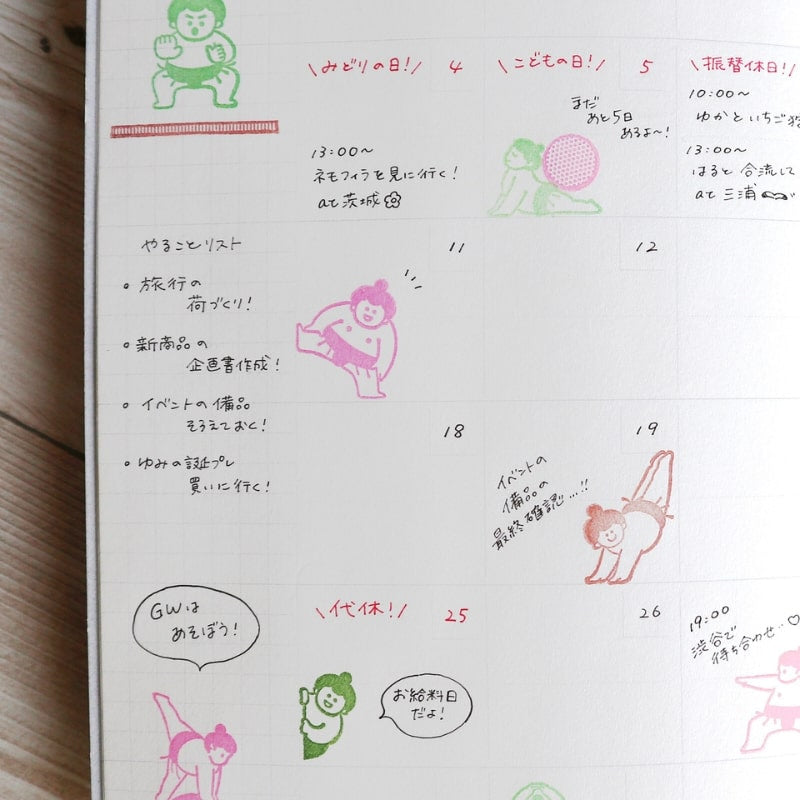 \みどりの日!/ 4
\こどもの日!/ 5
\振替休日!/
10:00～
ゆかといちご狩
13:00～
はると合流して
at 三浦
まだ
あと5日
あるよ～!
13:00～
ネモフィラを見に行く!
at 茨城
やることリスト
11
12
• 旅行の
荷づくり!
• 新商品の
企画書作成!
• イベントの備品
そろえておく!
• ゆみの誕プレ
買いに行く!
18
19
イベントの
備品の
最終確認…!!
GWは
あそぼう!
\代休!/ 25
26
お給料日
だよ!
19:00
渋谷で
待ち合わせ…♡